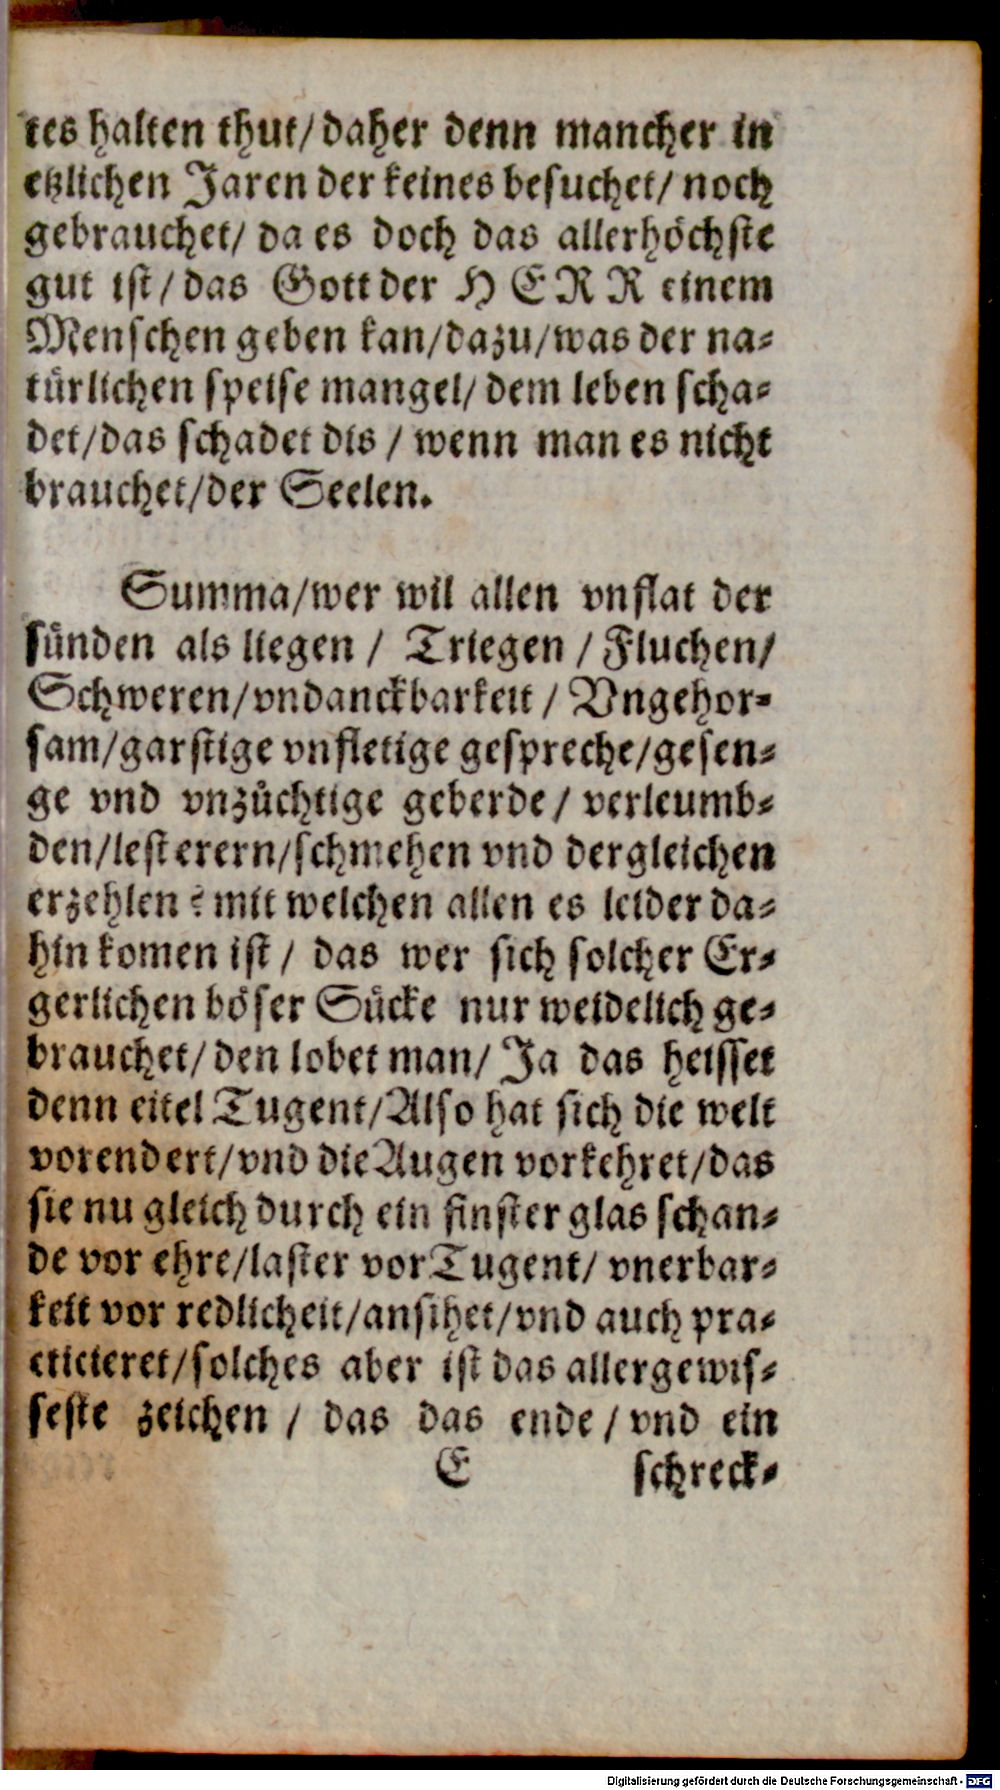 tes halten thut/ daher denn mancher in
etzlichen Jaren der keines besuchet/ noch
gebrauchet/ da es doch das allerhöchste
gut ist/ das Gott der HERR einem
Menschen geben kan/dazu/was der na-
türlichen speise mangel/ dem leben scha-
det/das schadet dis / wenn man es nicht
brauchet/der Seelen.
Summa/wer wil allen vnflat der
sünden als liegen / Triegen / Fluchen/
Schweren/vndanckbarkeit / Vngehor-
sam/garstige vnfletige gespreche/gesen-
ge vnd vnzüchtige geberde / verleumb-
den/lesterern/schmehen vnd dergleichen
erzehlen? mit welchen allen es leider da-
hin komen ist / das wer sich solcher Er-
gerlichen böser Sücke nur weidelich ge-
brauchet/ den lobet man/ Ja das heisset
denn eitel Tugent/Also hat sich die welt
vorendert/vnd die Augen vorkehret/das
sie nu gleich durch ein finster glas schan-
de vor ehre/laster vor Tugent/ vnerbar-
keit vor redlicheit/ansihet/vnd auch pra-
cticieret/solches aber ist das allergewis-
seste zeichen / das das ende / vnd ein
E schreck-
Digitalisierung gefördert durch die Deutsche Forschungsgemeinschaft - DFG